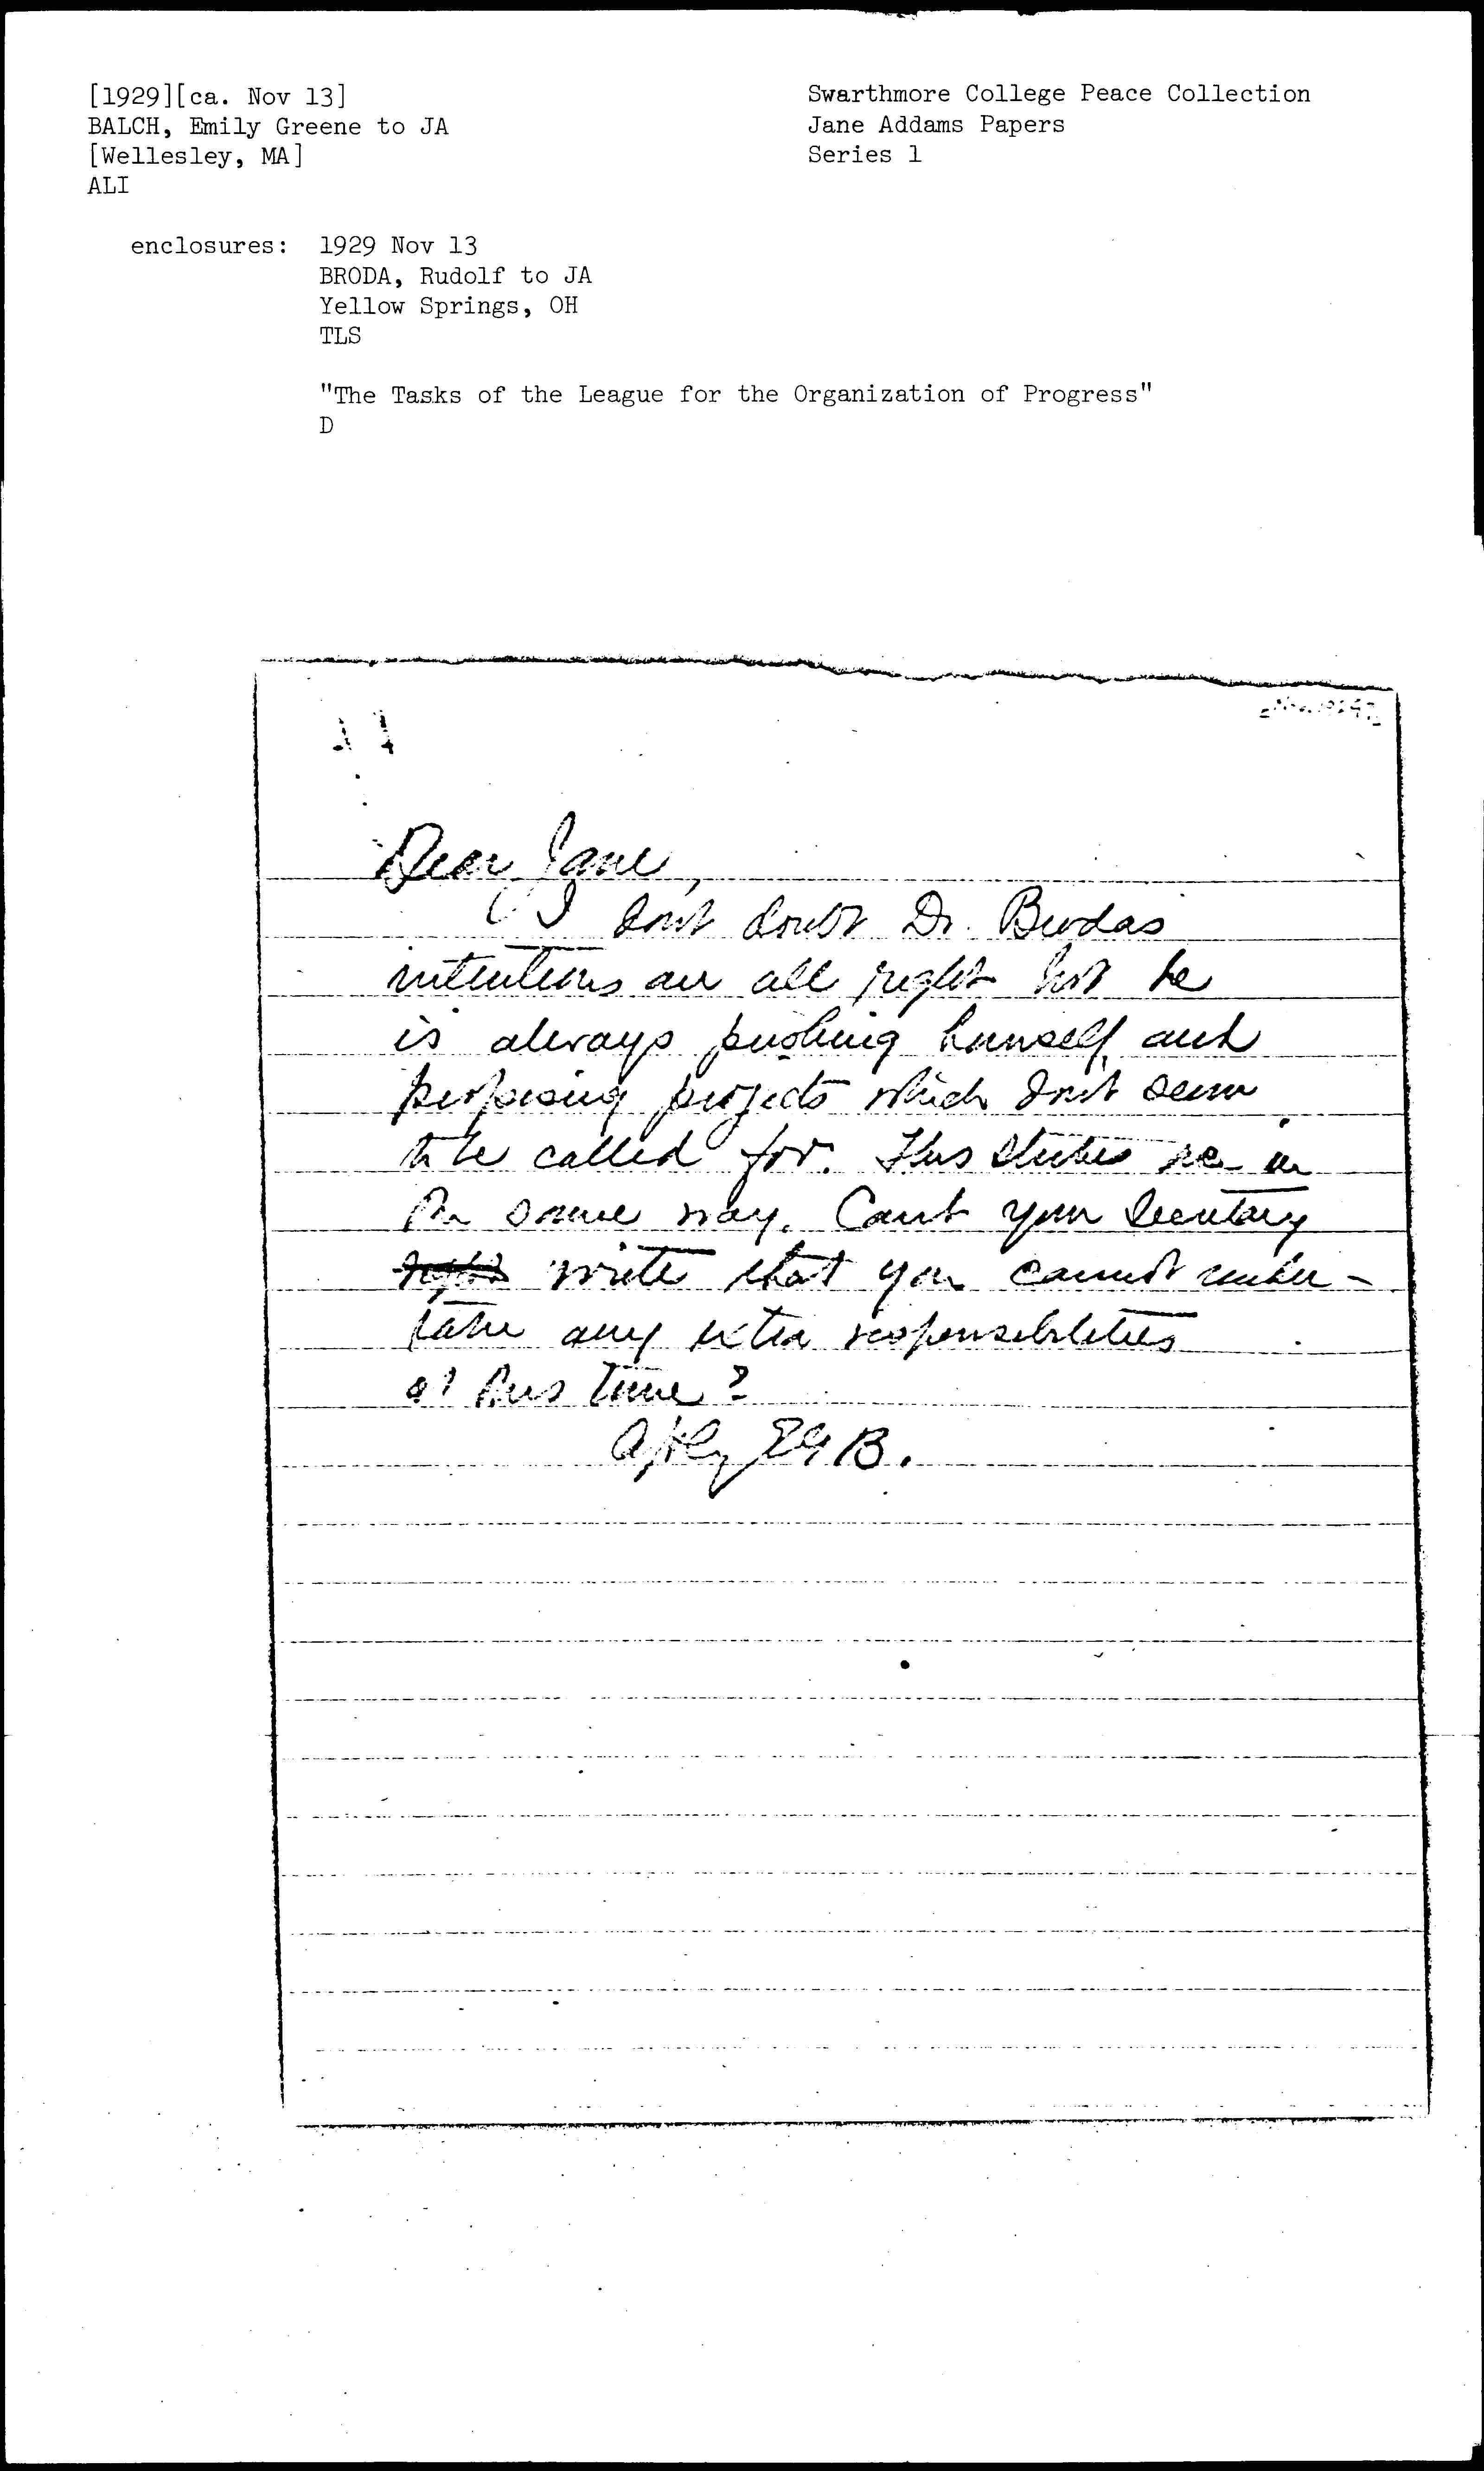 [1929][ca. Nov 13]
BALCH, Emily Greene to JA
[Wellesley, MA]
ALI
Swarthmore College Peace Collection
Jane Addams Papers
Series 1
enclosures: 1929 Nov 13
BRODA, Rudolf to JA
Yellow Springs, OH
TLS
"The Tasks of the League for the Organization of Progress"
D
Dear Jane,
I dont doubt Dr. Brodas
intentions are all right but he
is always pushing himself and
proposing projects which dont seem
to be called for. This strikes me in
the same way. Cant your Secretary
write that you cannot under-
take any extra responsibilities
at this time?
Affly EGB.